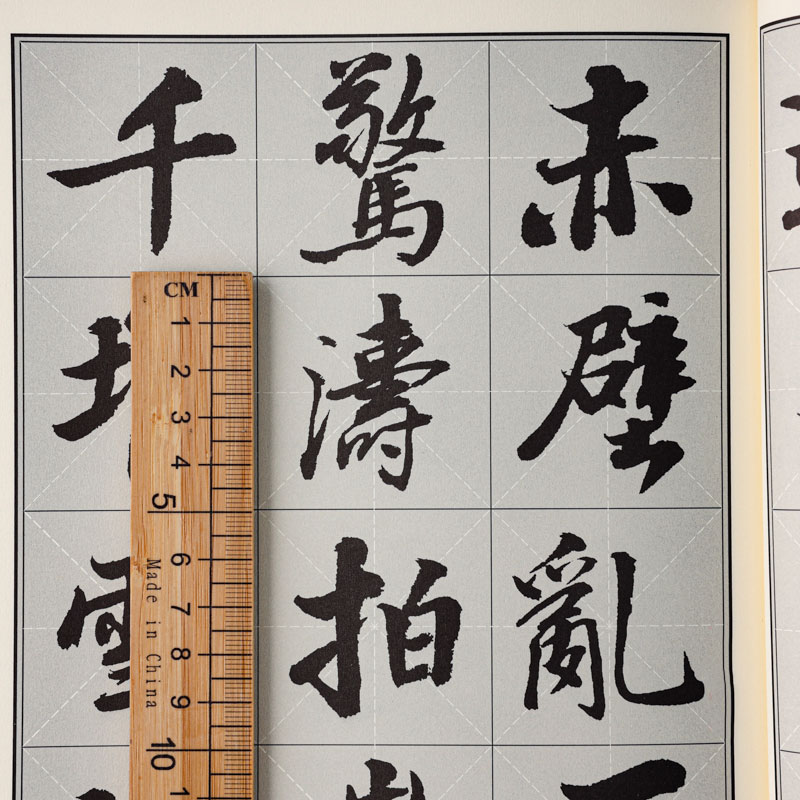 赤壁亂
驚濤拍
千
CM
1 2 3 4 5 6 7 8 9 10
Made in China